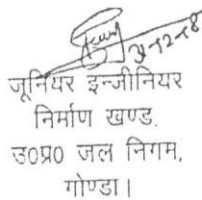 जूनियर इन्जीनियर
निर्माण खण्ड.
उ0प्र0 जल निगम,
गोण्डा।